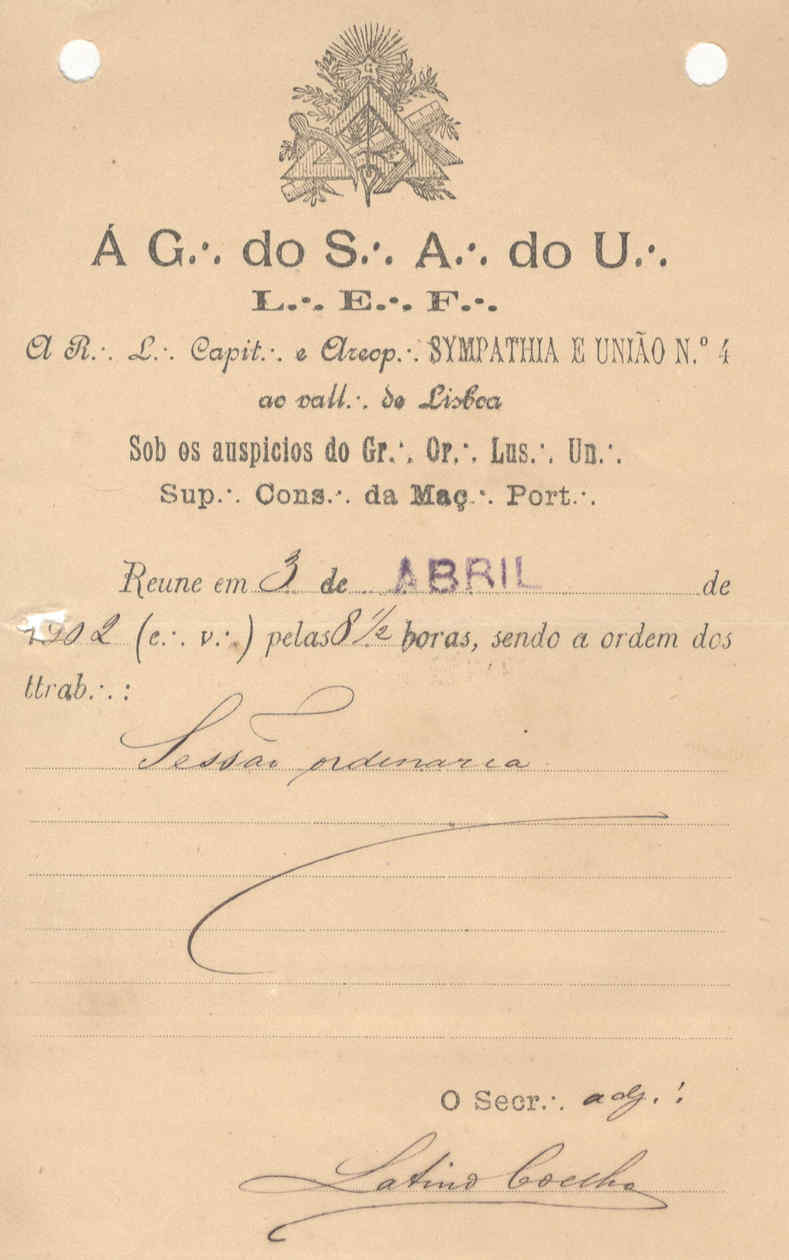 Á G.·. do S.·. A.·. do U.·.
L.·. E.·. F.·.
A R.·. L.·. Capit.·. e Areop.·. SYMPATHIA E UNIÃO N.º 4
ao vall.·. de Lisboa
Sob os auspicios do Gr.·. Or.·. Lus.·. Un.·.
Sup.·. Cons.·. da Maç.·. Port.·.
Reune em 3 de ABRIL de
1902 (e.·. v.·.) pelas 8 1/2 horas, sendo a ordem dos
ttrab.·. :
Sessão ordenaria
O Secr.·. adj.·.
Latino Coelho